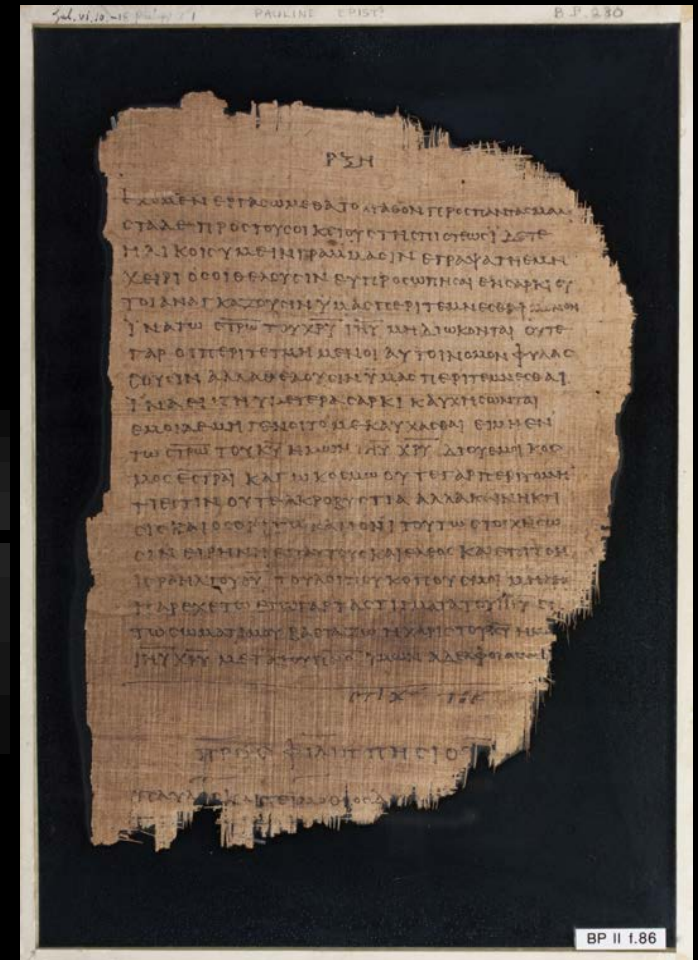 Gal. vi, 10–18
PAULINE EPISTˢ
B.P. 230
ΡΞΗ
ΕΧΟΜΕΝ ΕΡΓΑΣΩΜΕΘΑ ΤΟ ΑΓΑΘΟΝ ΠΡΟΣ ΠΑΝΤΑΣ ΜΑΛΙ
ΣΤΑ ΔΕ ΠΡΟΣ ΤΟΥΣ ΟΙΚΕΙΟΥΣ ΤΗΣ ΠΙΣΤΕΩΣ ΙΔΕΤΕ
ΗΛΙΚΟΙΣ ΥΜΕΙΝ ΓΡΑΜΜΑΣΙΝ ΕΓΡΑΨΑ ΤΗ ΕΜΗ
ΧΕΙΡΙ ΟΣΟΙ ΘΕΛΟΥΣΙΝ ΕΥΠΡΟΣΩΠΗΣΑΙ ΕΝ ΣΑΡΚΙ ΟΥ
ΤΟΙ ΑΝΑΓΚΑΖΟΥΣΙΝ ΥΜΑΣ ΠΕΡΙΤΕΜΝΕΣΘΑΙ ΜΟΝΟΝ
ΙΝΑ ΤΩ ΣΤΡΩ ΤΟΥ ΧΡΥ ΙΗΥ ΜΗ ΔΙΩΚΟΝΤΑΙ ΟΥΤΕ
ΓΑΡ ΟΙ ΠΕΡΙΤΕΤΜΗΜΕΝΟΙ ΑΥΤΟΙ ΝΟΜΟΝ ΦΥΛΑΣ
ΣΟΥΣΙΝ ΑΛΛΑ ΘΕΛΟΥΣΙΝ ΥΜΑΣ ΠΕΡΙΤΕΜΝΕΣΘΑΙ
ΙΝΑ ΕΝ ΤΗ ΥΜΕΤΕΡΑ ΣΑΡΚΙ ΚΑΥΧΗΣΩΝΤΑΙ
ΕΜΟΙ ΔΕ ΜΗ ΓΕΝΟΙΤΟ ΜΕ ΚΑΥΧΑΣΘΑΙ ΕΙ ΜΗ ΕΝ
ΤΩ ΣΤΡΩ ΤΟΥ ΚΥ ΗΜΩΝ ΙΗΥ ΧΡΥ ΔΙ ΟΥ ΕΜΟΙ ΚΟΣ
ΜΟΣ ΕΣΤΡΑΙ ΚΑΓΩ ΚΟΣΜΩ ΟΥΤΕ ΓΑΡ ΠΕΡΙΤΟΜΗ
ΤΙ ΕΣΤΙΝ ΟΥΤΕ ΑΚΡΟΒΥΣΤΙΑ ΑΛΛΑ ΚΑΙΝΗ ΚΤΙ
ΣΙΣ ΚΑΙ ΟΣΟΙ ΤΩ ΚΑΝΟΝΙ ΤΟΥΤΩ ΣΤΟΙΧΗΣΩ
ΣΙΝ ΕΙΡΗΝΗ ΕΠ ΑΥΤΟΥΣ ΚΑΙ ΕΛΕΟΣ ΚΑΙ ΕΠΙ ΤΟΝ
ΙΣΡΑΗΛ ΤΟΥ ΘΥ ΤΟΥ ΛΟΙΠΟΥ ΚΟΠΟΥΣ ΜΟΙ ΜΗΔΕΙΣ
ΠΑΡΕΧΕΤΩ ΕΓΩ ΓΑΡ ΤΑ ΣΤΙΓΜΑΤΑ ΤΟΥ ΙΗΥ ΕΝ
ΤΩ ΣΩΜΑΤΙ ΜΟΥ ΒΑΣΤΑΖΩ Η ΧΑΡΙΣ ΤΟΥ ΚΥ ΗΜΩΝ
ΙΗΥ ΧΡΥ ΜΕΤΑ ΤΟΥ ΠΝΣ ΥΜΩΝ ΑΔΕΛΦΟΙ ΑΜΗΝ
ΣΤΙΧ ΤΟΕ
ΠΡΟΣ ΦΙΛΙΠΠΗΣΙΟΥΣ
ΠΑΥΛΟΣ ΚΑΙ ΤΕΙΜΟΘΕΟΣ
BP II f.86